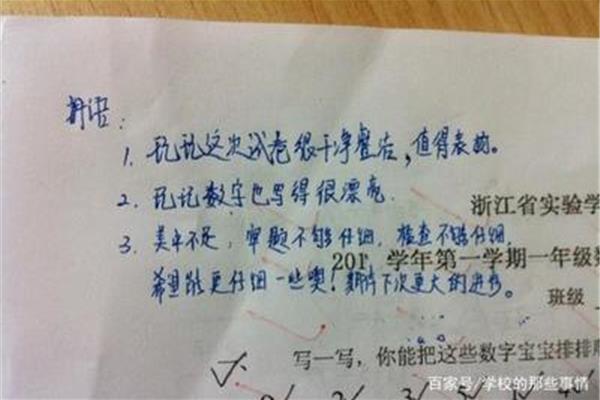 评语：
1. 玩玩这次试卷很干净整洁，值得表扬。
2. 玩玩数字也写得很漂亮。
浙江省实验学
3. 美中不足，审题不够仔细，检查不够仔细，
201 学年第一学期一年级数
希望能更仔细一些噢！期待下次更大的进步。
班级
写一写，你能把这些数字宝宝排排
百家号/学校的那些事情